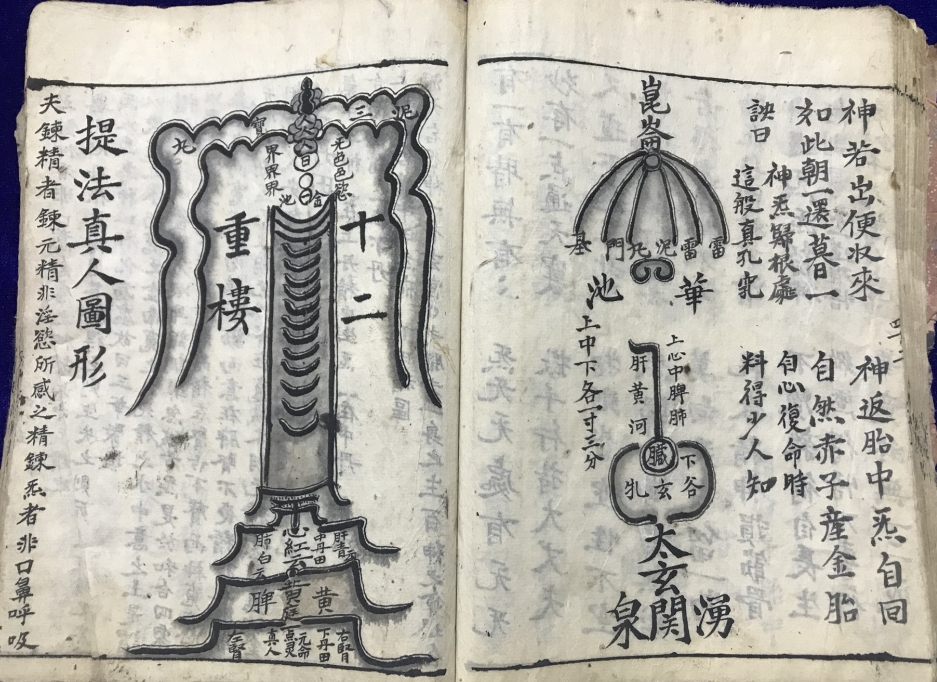 神若出便收來 神返胎中炁自回
如此朝〻還暮〻 自然赤子産金胎
訣曰
神炁歸根處 自心復命時
這般真孔竅 料得少人知
崑崙
雷雷泥丸門基
華池
上中下各一寸三分
上心中脾肺
肝黄河
臓
下谷
玄
牝
太玄關
湧泉
泥三寶丸
无色色慾
界界界
金池
十二
重樓
肝青
中丹田
心紅
黄庭
肺白云
黄
脾
右腎
下丹田
元命
真人
左腎
提法真人圖形
夫錬精者錬元精非淫慾所感之精錬炁者非口鼻呼吸